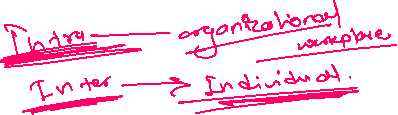 Intra — organizational
workplace
Inter → Individual.